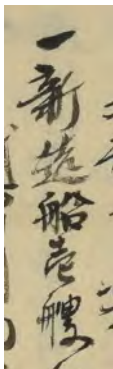 一新造船壱艘